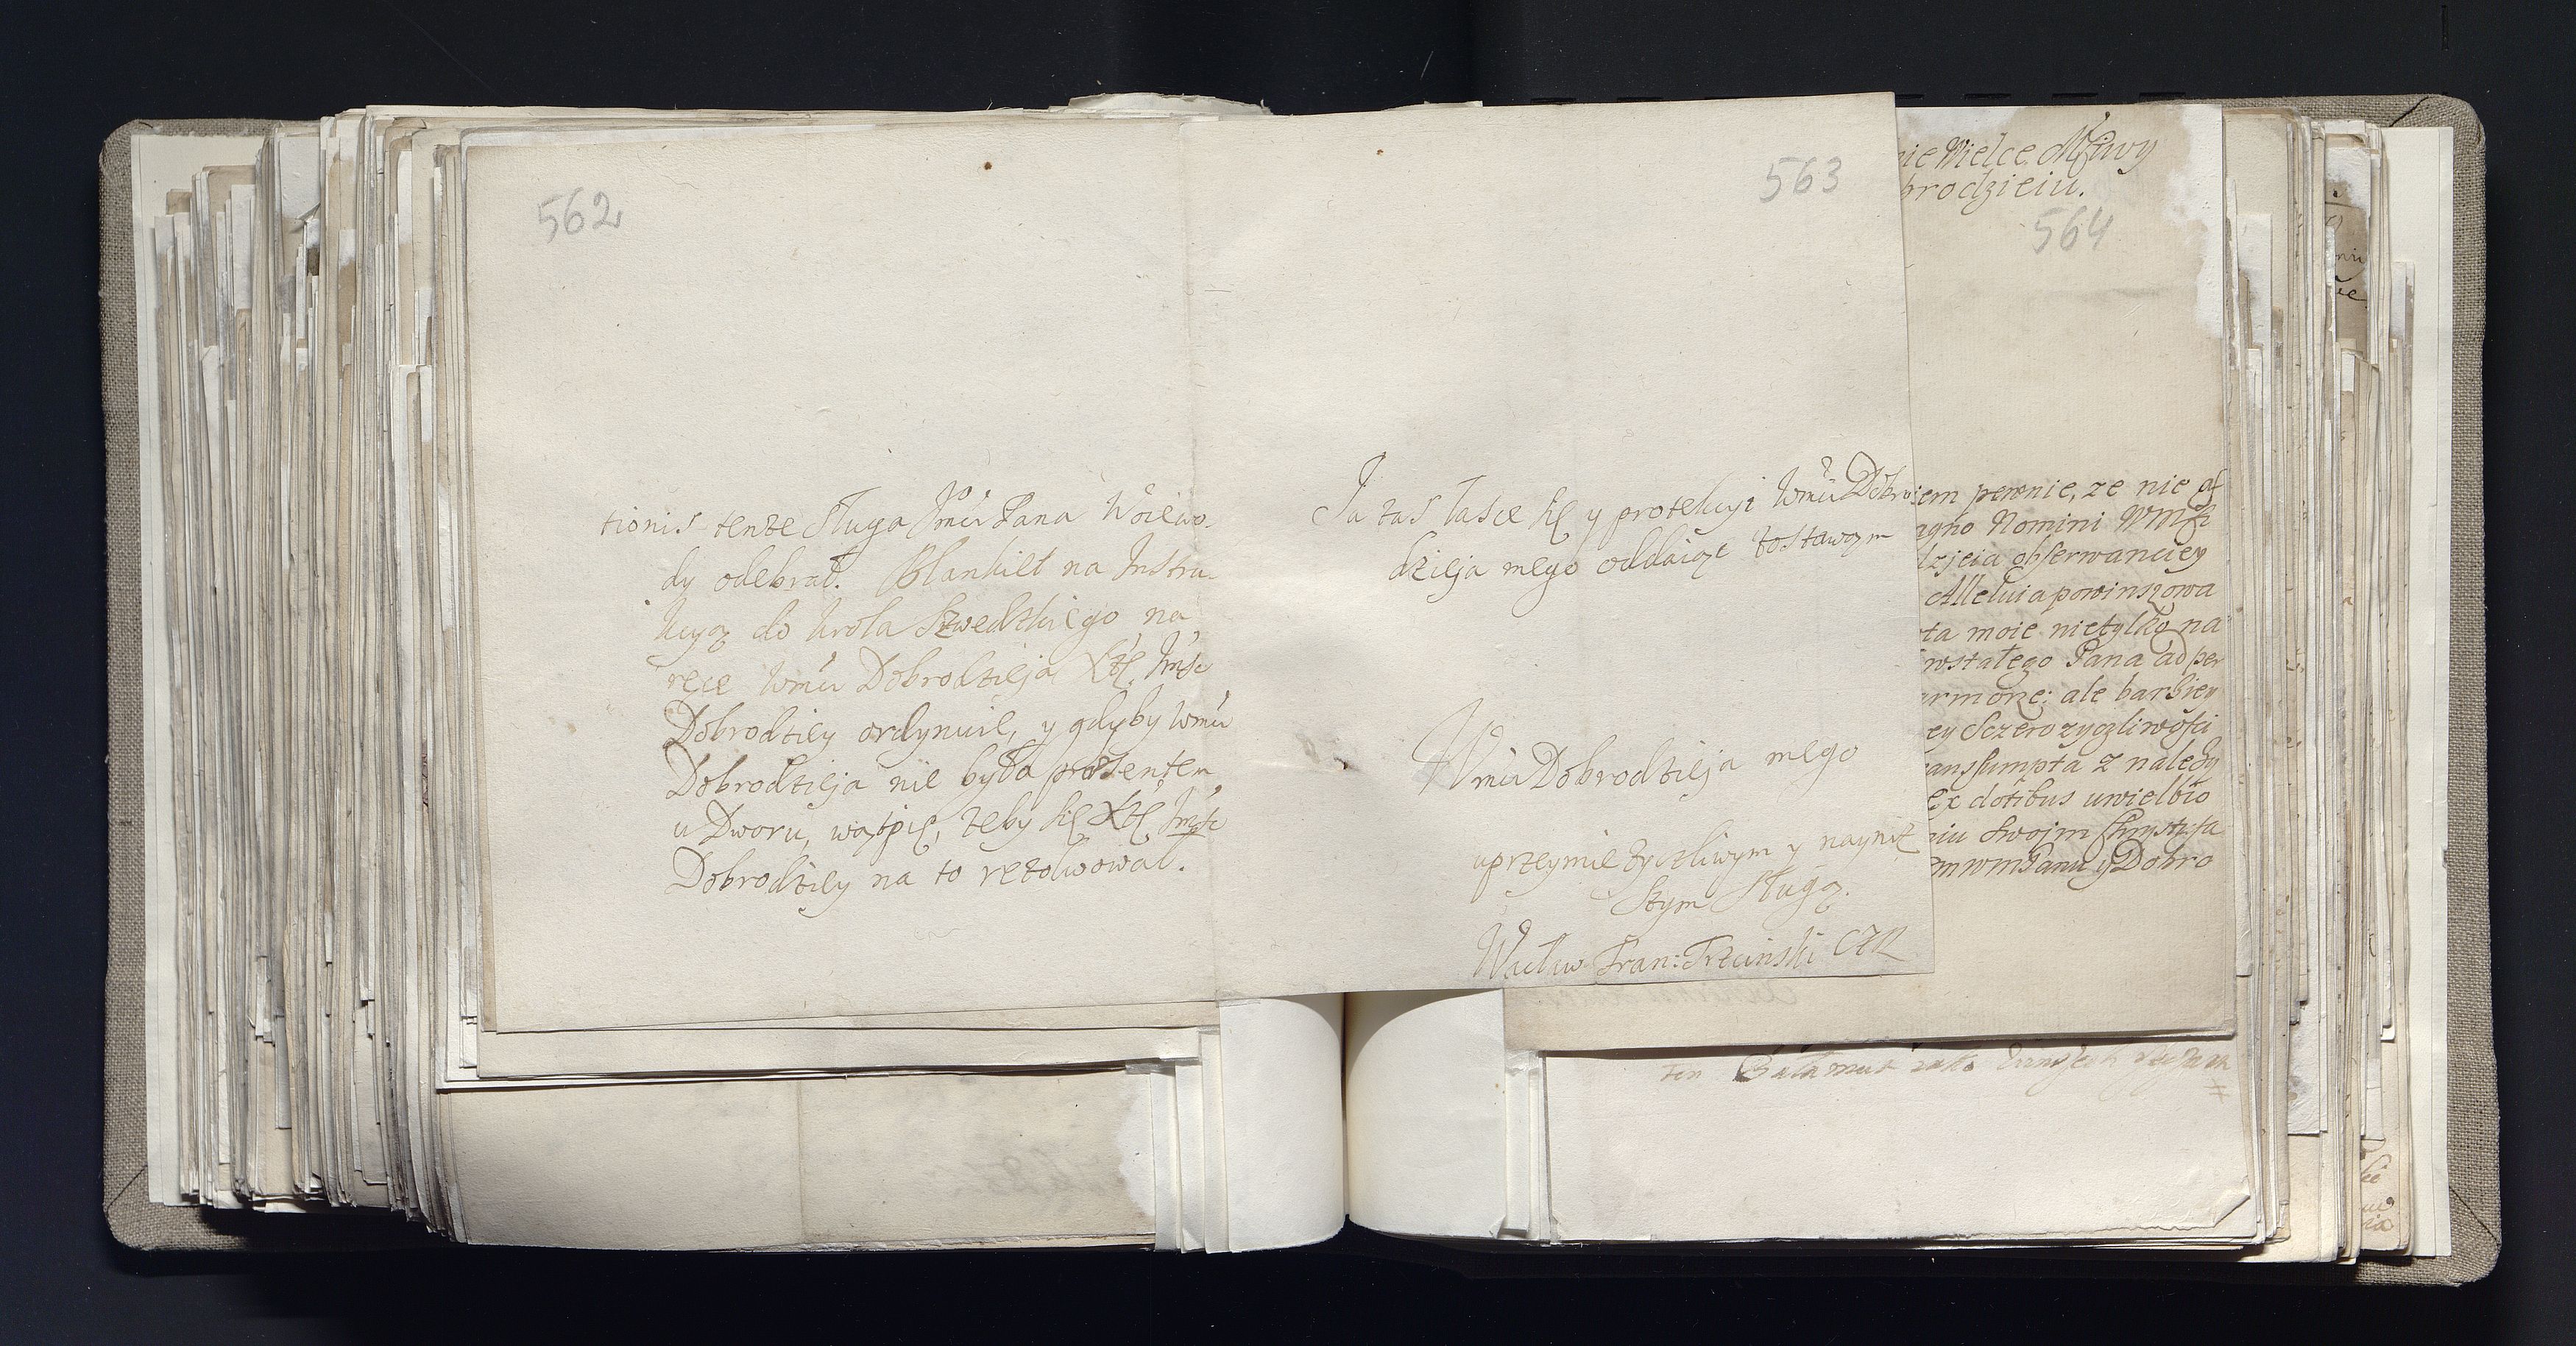 562
tionis tenże sługa Jmći Pana Woiewo-
dy odebrał. Blankiet na Instru-
kcyą do Krola Szwedzkiego na
ręce Wmći Dobrodzieja Xżę Jmść
Dobrodziey ordynuie, y gdyby Wmći
Dobrodzieja nie było prezentem
u Dworu, wątpię, żeby się Xżę Jmść
Dobrodziey na to rezolwował.
563
Ja zaś łasce się y protekcyi Wmći Dobro:
dzieja mego oddaiąc zostawam
Wmći Dobrodzieja mego
uprzeymie życzliwym y nayniż
szym sługą.
Wacław Fran: Trzcinski
ie Wielce Mściwy
brodzieiu.
564
em pewnie, ze nie
agno Nomini
dzieia obserwanciey
Alleluia powinszowa
ta moie nietylko na
wstałego Pana ad per
ale barziey
ey sczero zyczliwości
ansumpta z należy
Ex dotibus uwielbio
niu swoim
m wm Panu y Dobro
ten Bałamut iako